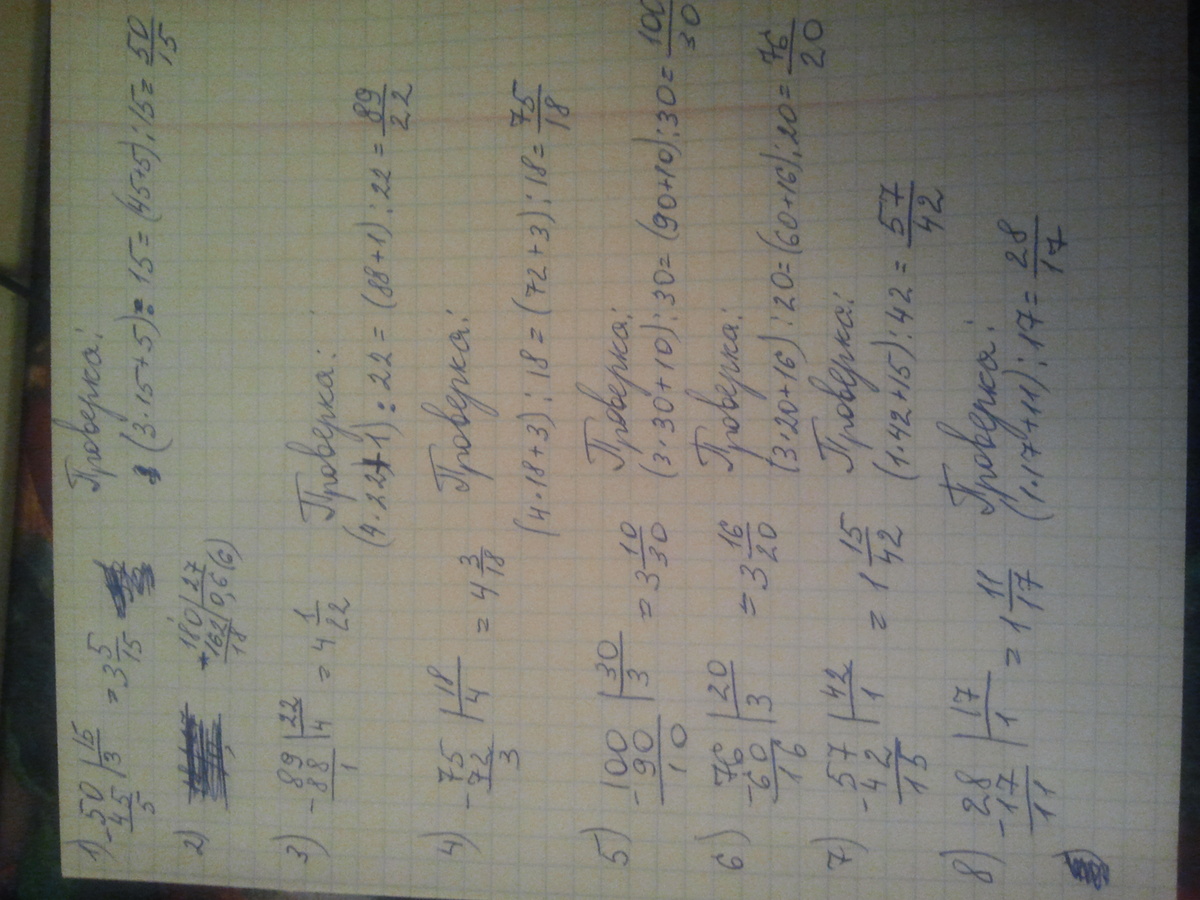 1) -50 |15 = 3 5/15 Проверка:
45 |3
5
(3·15+5):15=(45+5):15=50/15
2) 180 |27
162 |0,6(6)
18
3) -89 |22 = 4 1/22 Проверка:
88 |4
1
(4·22+1):22=(88+1):22=89/22
4) -75 |18 = 4 3/18 Проверка:
72 |4
3
(4·18+3):18=(72+3):18=75/18
5) -100 |30 = 3 10/30 Проверка:
90 |3
10
(3·30+10):30=(90+10):30=100/30
6) -76 |20 = 3 16/20 Проверка:
60 |3
16
(3·20+16):20=(60+16):20=76/20
7) -57 |42 = 1 15/42 Проверка:
42 |1
15
(1·42+15):42=57/42
8) -28 |17 = 1 11/17 Проверка:
17 |1
11
(1·17+11):17=28/17